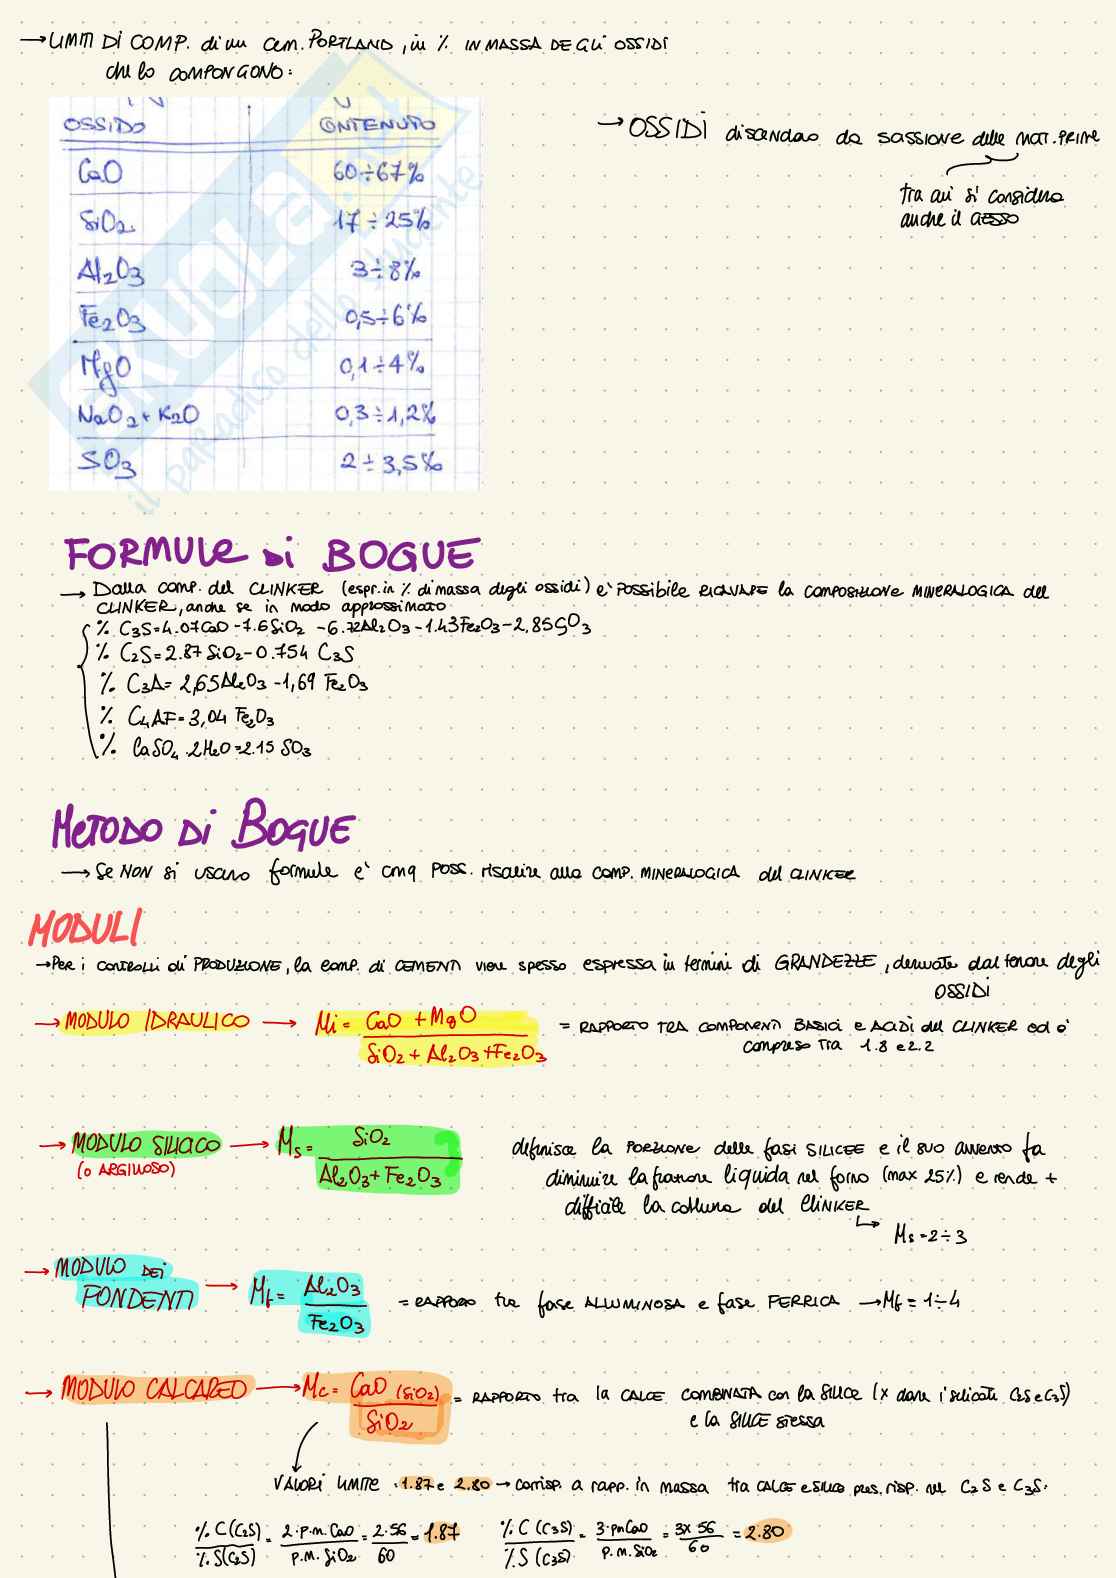 → LIMITI DI COMP. di un cem. PORTLAND, in % IN MASSA DEGLI OSSIDI
che lo COMPONGONO:
OSSIDO CONTENUTO
CaO 60÷67%
SiO2 17÷25%
Al2O3 3÷8%
Fe2O3 0,5÷6%
MgO 0,1÷4%
NaO2+K2O 0,3÷1,2%
SO3 2÷3,5%
SKUOLA
il paradiso dello studente
→ OSSIDI discendono da
delle MAT. PRIME
tra cui si considera
anche il GESSO
FORMULE di BOGUE
→ Dalla comp. del CLINKER (espr. in % di massa degli ossidi) è POSSIBILE RICAVARE la COMPOSIZIONE MINERALOGICA del
CLINKER, anche se in modo approssimato
% C3S=4.07CaO-7.6SiO2-6.72Al2O3-1.43Fe2O3-2,85SO3
% C2S=2.87SiO2-0.754 C3S
% C3A=2,65Al2O3-1,69 Fe2O3
% C4AF=3,04 Fe2O3
% CaSO4.2H2O=2.15 SO3
METODO DI BOGUE
→ Se NON si usano formule è cmq POSS. risalire alla COMP. MINERALOGICA del CLINKER
MODULI
→ Per i controlli di PRODUZIONE, la comp. di CEMENTI viene spesso espressa in termini di GRANDEZZE, derivate dal tenore degli
OSSIDI
→ MODULO IDRAULICO → Mi = CaO + MgO / SiO2 + Al2O3 + Fe2O3 = RAPPORTO TRA COMPONENTI BASICI e ACIDI del CLINKER ed è
compreso TRA 1.8 e 2.2
→ MODULO SILICICO → Ms = SiO2 / Al2O3 + Fe2O3
(o ARGILLOSO)
definisce la PORZIONE delle fasi SILICEE e il suo aumento fa
diminuire la frazione liquida nel forno (max 25%) e rende +
difficile la cottura del CLINKER
↳ Ms = 2÷3
→ MODULO DEI
FONDENTI → Mf = Al2O3 / Fe2O3 = RAPPORTO tra fase ALLUMINOSA e fase FERRICA → Mf = 1÷4
→ MODULO CALCAREO → Mc = CaO (SiO2) / SiO2 = RAPPORTO tra la CALCE COMBINATA con la SILICE (x dare i silicati C2S e C3S)
e la SILICE stessa
VALORI LIMITE: 1.87 e 2.80 → corrisp. a rapp. in massa tra CALCE e SILICE pres. risp. nel C2S e C3S:
%C(C2S) / %S(C2S) = 2·p.m. CaO / p.m. SiO2 = 2·56 / 60 = 1.87
%C(C3S) / %S(C3S) = 3·pmCaO / p.m. SiO2 = 3x56 / 60 = 2.80